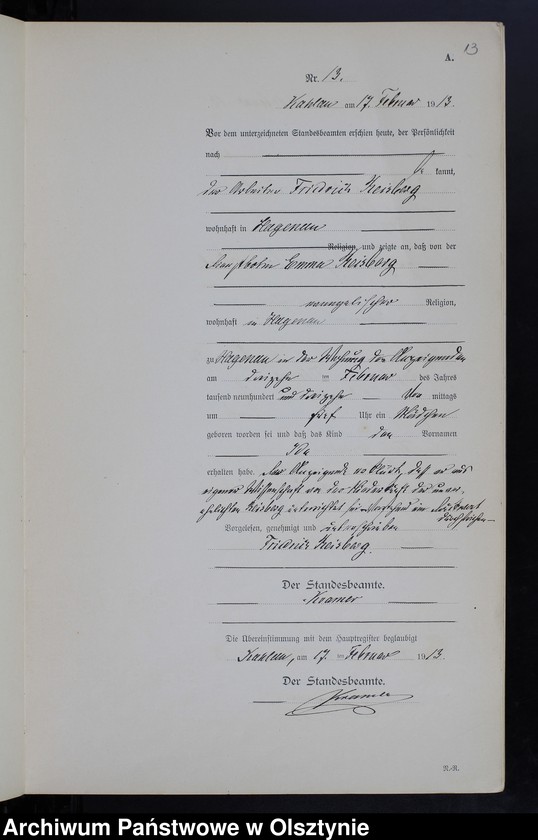 13
A.
Nr. 13.
Kahlau am 17. Februar 1913.
Vor dem unterzeichneten Standesbeamten erschien heute, der Persönlichkeit
nach
be kannt,
der Arbeiter Friedrich Keisberg
wohnhaft in Hagenau
Religion, und zeigte an, daß von der
Emma Keisberg
evangelischer Religion,
wohnhaft in Hagenau
zu Hagenau in der Wohnung des Anzeigenden
am dreizehn ten Februar des Jahres
tausend neunhundert und dreizehn Vor mittags
um fünf Uhr ein Mädchen
geboren worden sei und daß das Kind den Vornamen
Ida
erhalten habe. Der Anzeigende erklärte, daß er aus
eigener Wissenschaft von der Niederkunft der unver-
ehelichten Keisberg unterrichtet sei. Vorstehend ein Druckwort
durchstrichen
Vorgelesen, genehmigt und unterschrieben
Friedrich Keisberg.
Der Standesbeamte.
Kramer
Die Übereinstimmung mit dem Hauptregister beglaubigt
Kahlau, am 17. ten Februar 1913.
Der Standesbeamte.
Kramer
N.-R.
Archiwum Państwowe w Olsztynie